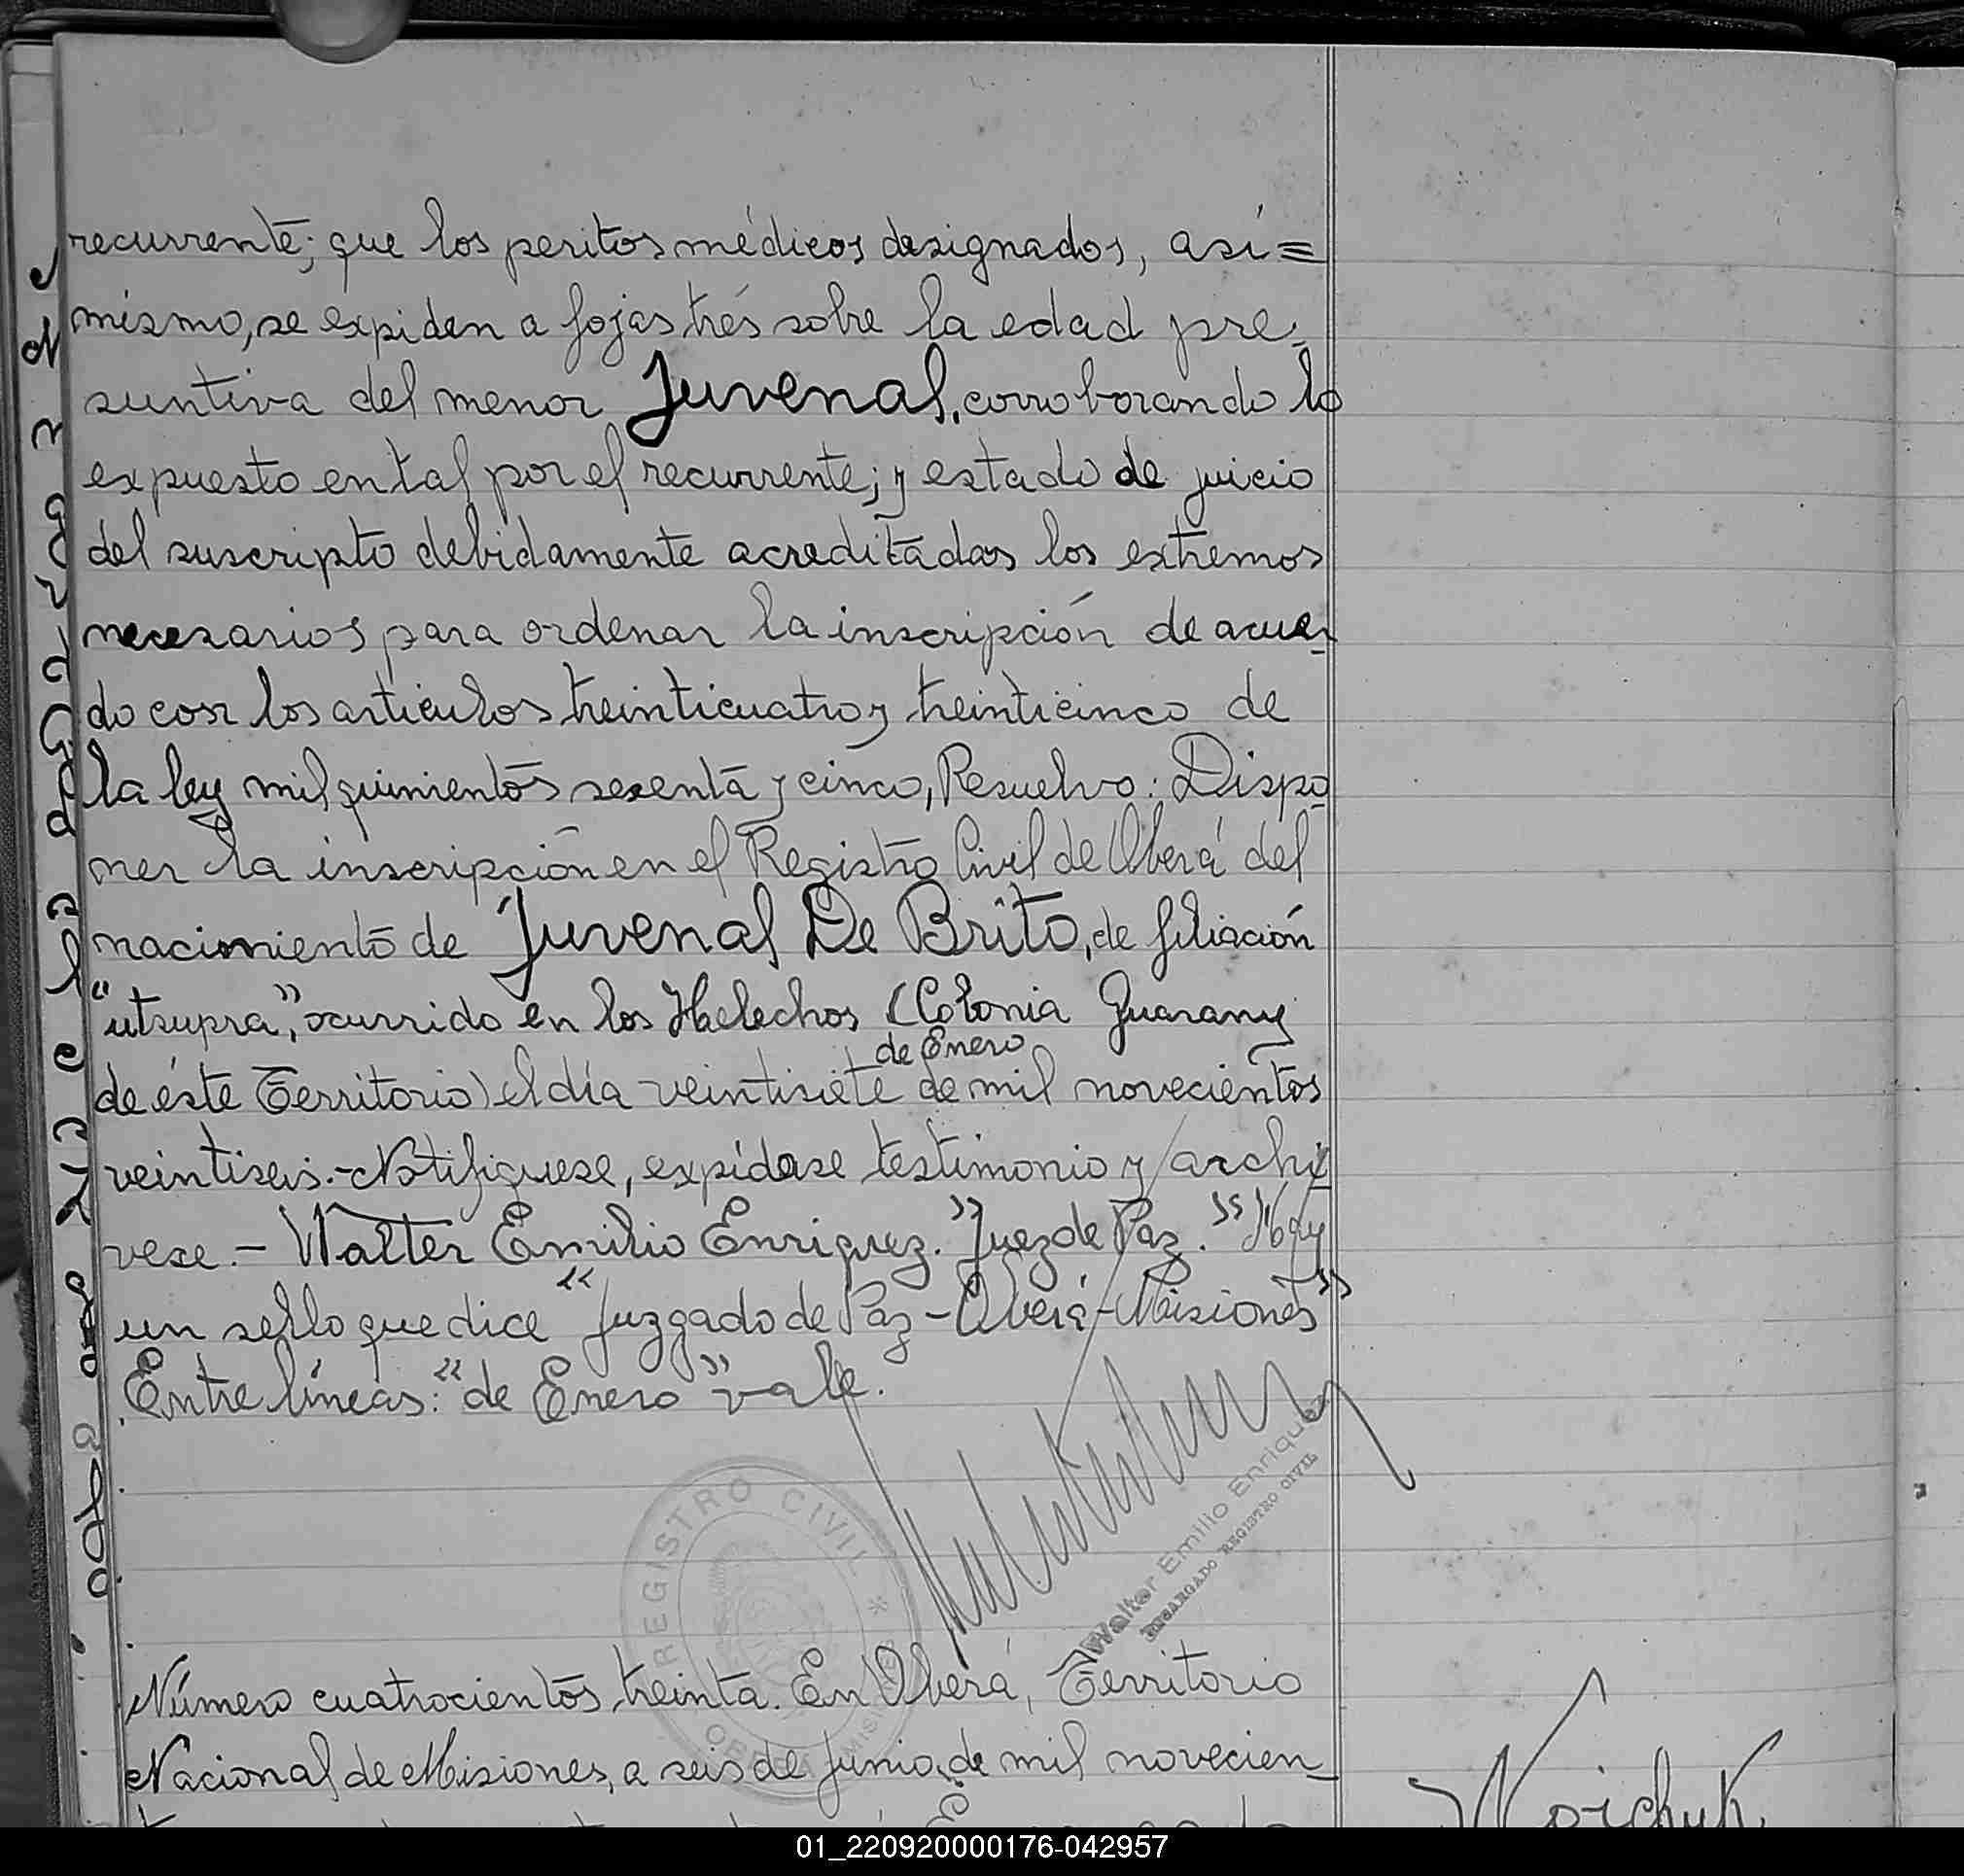 recurrente; que los peritos médicos designados, así=
mismo, se expiden a fojas trés sobre la edad pre-
suntiva del menor Juvenal, corroborando lo
expuesto en tal por el recurrente; y estado de juicio
del suscripto debidamente acreditadas los extremos
necesarios para ordenar la inscripción de acuer-
do con los articulos treinticuatro y treinticinco de
la ley mil quinientos sesenta y cinco, Resuelvo: Dispo-
ner la inscripción en el Registro Civil de Oberá del
nacimiento de Juvenal De Brito, de filiación
"utsupra", ocurrido en los Helechos (Colonia Guarany
de Enero
de éste Territorio) el día veintisiete de mil novecientos
veintiseis.- Notifiquese, expídase testimonio y archi-
vese.- Walter Emilio Enriquez. "Juez de Paz." Hay
un sello que dice "Juzgado de Paz - Oberá - Misiones"
Entre líneas: "de Enero" vale.
REGISTRO CIVIL
Walter Emilio Enriquez
ENCARGADO REGISTRO CIVIL
Número cuatrocientos treinta. En Oberá, Territorio
Nacional de Misiones, a seis de Junio de mil novecien-
Woichuk
01_220920000176-042957